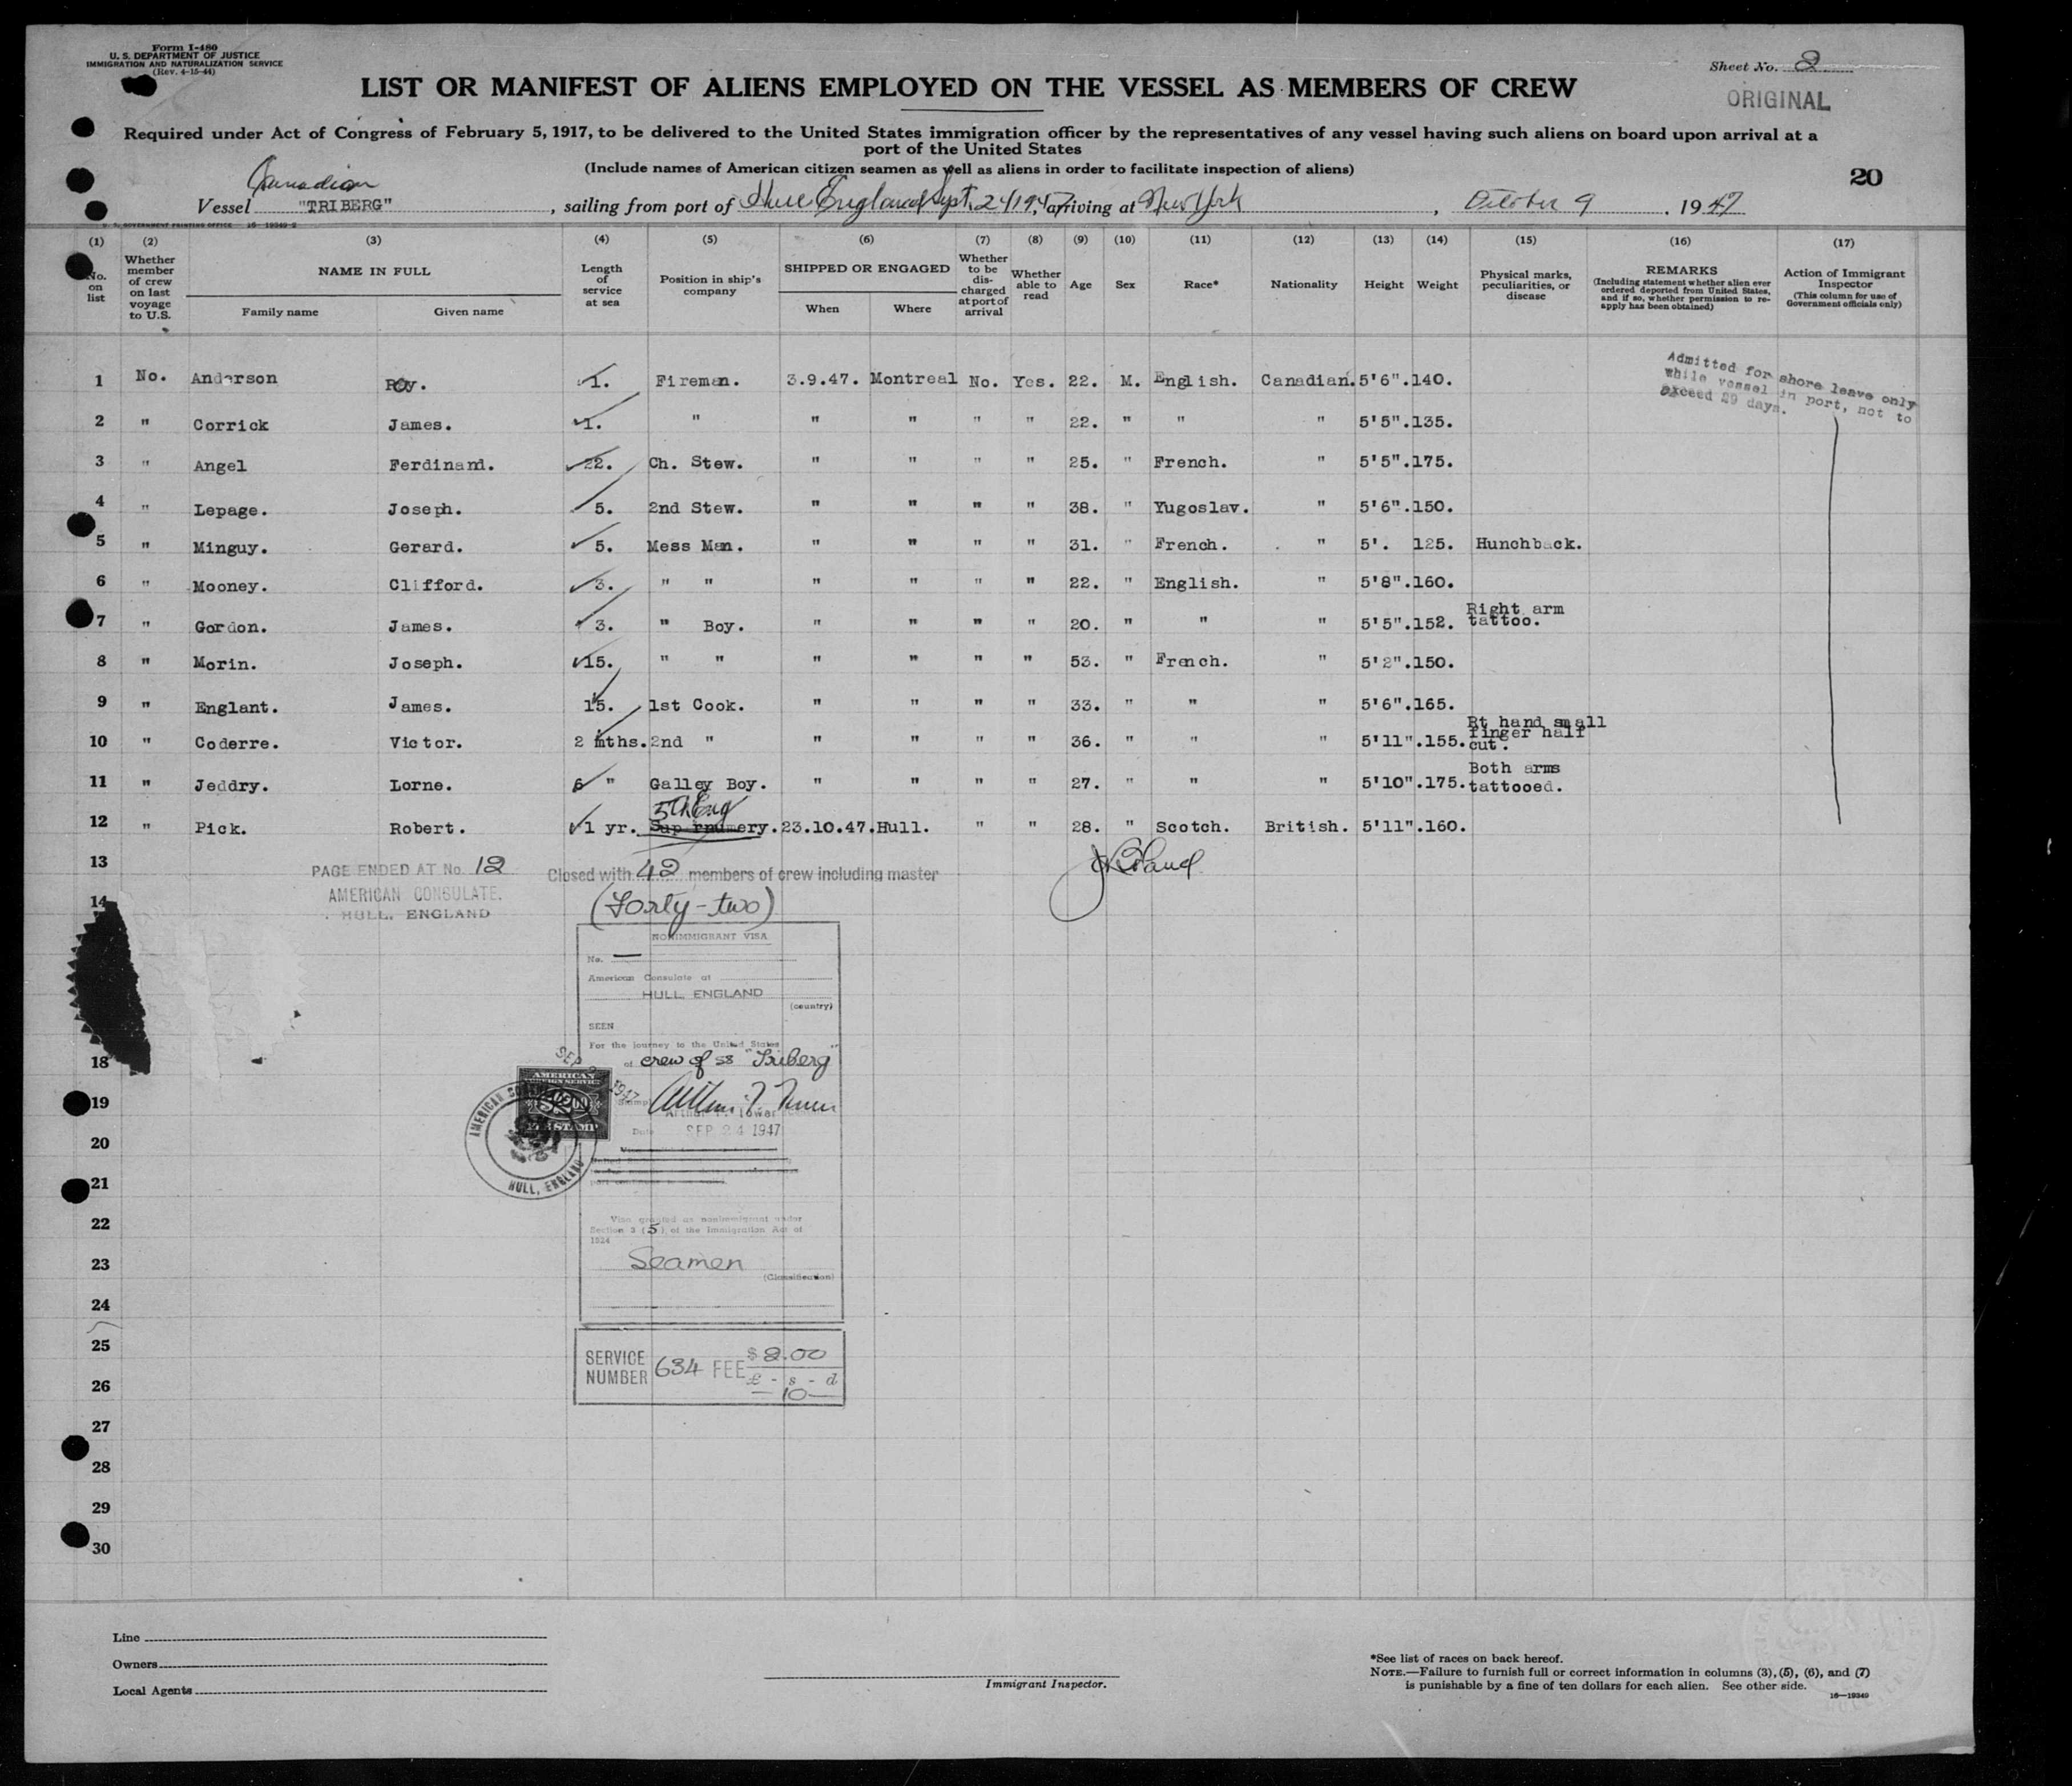 Form I-480
U. S. DEPARTMENT OF JUSTICE
IMMIGRATION AND NATURALIZATION SERVICE
(Rev. 4-15-44)
Sheet No. 2
ORIGINAL
LIST OR MANIFEST OF ALIENS EMPLOYED ON THE VESSEL AS MEMBERS OF CREW
Required under Act of Congress of February 5, 1917, to be delivered to the United States immigration officer by the representatives of any vessel having such aliens on board upon arrival at a
port of the United States
(Include names of American citizen seamen as well as aliens in order to facilitate inspection of aliens)
20
Canadian
Vessel "TRIBERG", sailing from port of Hull England Sept. 24 1947, arriving at New York, October 9, 1947
U. S. GOVERNMENT PRINTING OFFICE 16-19349-2
(1) (2) (3) (4) (5) (6) (7) (8) (9) (10) (11) (12) (13) (14) (15) (16) (17)
No. on list
Whether member of crew on last voyage to U.S.
NAME IN FULL
Family name Given name
Length of service at sea
Position in ship's company
SHIPPED OR ENGAGED
When Where
Whether to be discharged at port of arrival
Whether able to read
Age
Sex
Race*
Nationality
Height
Weight
Physical marks, peculiarities, or disease
REMARKS
(Including statement whether alien ever ordered deported from United States, and if so, whether permission to re-apply has been obtained)
Action of Immigrant Inspector
(This column for use of Government officials only)
Admitted for shore leave only
while vessel in port, not to
exceed 29 days.
1 No. Anderson Roy. 1. Fireman. 3.9.47. Montreal No. Yes. 22. M. English. Canadian. 5'6". 140.
2 " Corrick James. 1. " " " " " 22. " " " 5'5". 135.
3 " Angel Ferdinand. 22. Ch. Stew. " " " " 25. " French. " 5'5". 175.
4 " Lepage. Joseph. 5. 2nd Stew. " " " " 38. " Yugoslav. " 5'6". 150.
5 " Minguy. Gerard. 5. Mess Man. " " " " 31. " French. " 5'. 125. Hunchback.
6 " Mooney. Clifford. 3. " " " " " " 22. " English. " 5'8". 160.
7 " Gordon. James. 3. " Boy. " " " " 20. " " " 5'5". 152. Right arm tattoo.
8 " Morin. Joseph. 15. " " " " " " 53. " French. " 5'2". 150.
9 " Englant. James. 15. 1st Cook. " " " " 33. " " " 5'6". 165.
10 " Coderre. Victor. 2 mths. 2nd " " " " " 36. " " " 5'11". 155. Rt hand small finger half cut.
11 " Jeddry. Lorne. 6 " Galley Boy. " " " " 27. " " " 5'10". 175. Both arms tattooed.
5th Eng
12 " Pick. Robert. 1 yr. Supernumery. 23.10.47. Hull. " " 28. " Scotch. British. 5'11". 160.
13
PAGE ENDED AT No. 12
AMERICAN CONSULATE.
HULL, ENGLAND
Closed with 42 members of crew including master
(Forty-two)
14
NONIMMIGRANT VISA
No. —
American Consulate at
HULL, ENGLAND
(country)
SEEN
For the journey to the United States
of crew of ss "Triberg"
18
SEP 1947
AMERICAN
FOREIGN SERVICE
FEE STAMP
AMERICAN CONSULATE
HULL, ENGLAND
Stamp
Date SEP 24 1947
19
20
21
Visa granted as nonimmigrant under
Section 3 (5), of the Immigration Act of
1924
Seamen
(Classification)
22
23
24
25
26
SERVICE NUMBER 634 FEE $ 2.00
£ - s - d
— 10 —
27
28
29
30
Line
Owners
Local Agents
Immigrant Inspector.
*See list of races on back hereof.
NOTE.—Failure to furnish full or correct information in columns (3), (5), (6), and (7)
is punishable by a fine of ten dollars for each alien. See other side.
16—19349